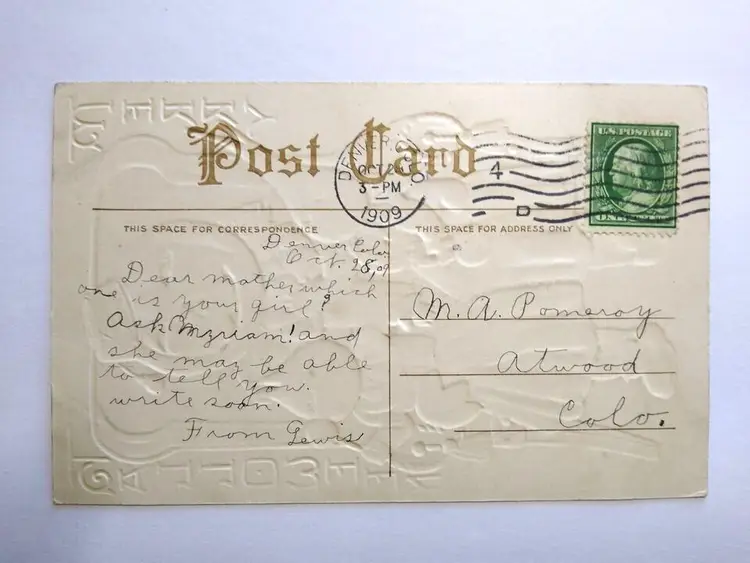 Post Card
DENVER, COLO.
OCT 28
3-PM
1909
4
D
U.S. POSTAGE
THIS SPACE FOR CORRESPONDENCE
THIS SPACE FOR ADDRESS ONLY
Denver Colo
Oct. 28, 09
Dear mother which
one is your girl?
Ask Myriam! and
she may be able
to tell you.
write soon.
From Lewis
M. A. Pomeroy
Atwood
Colo.